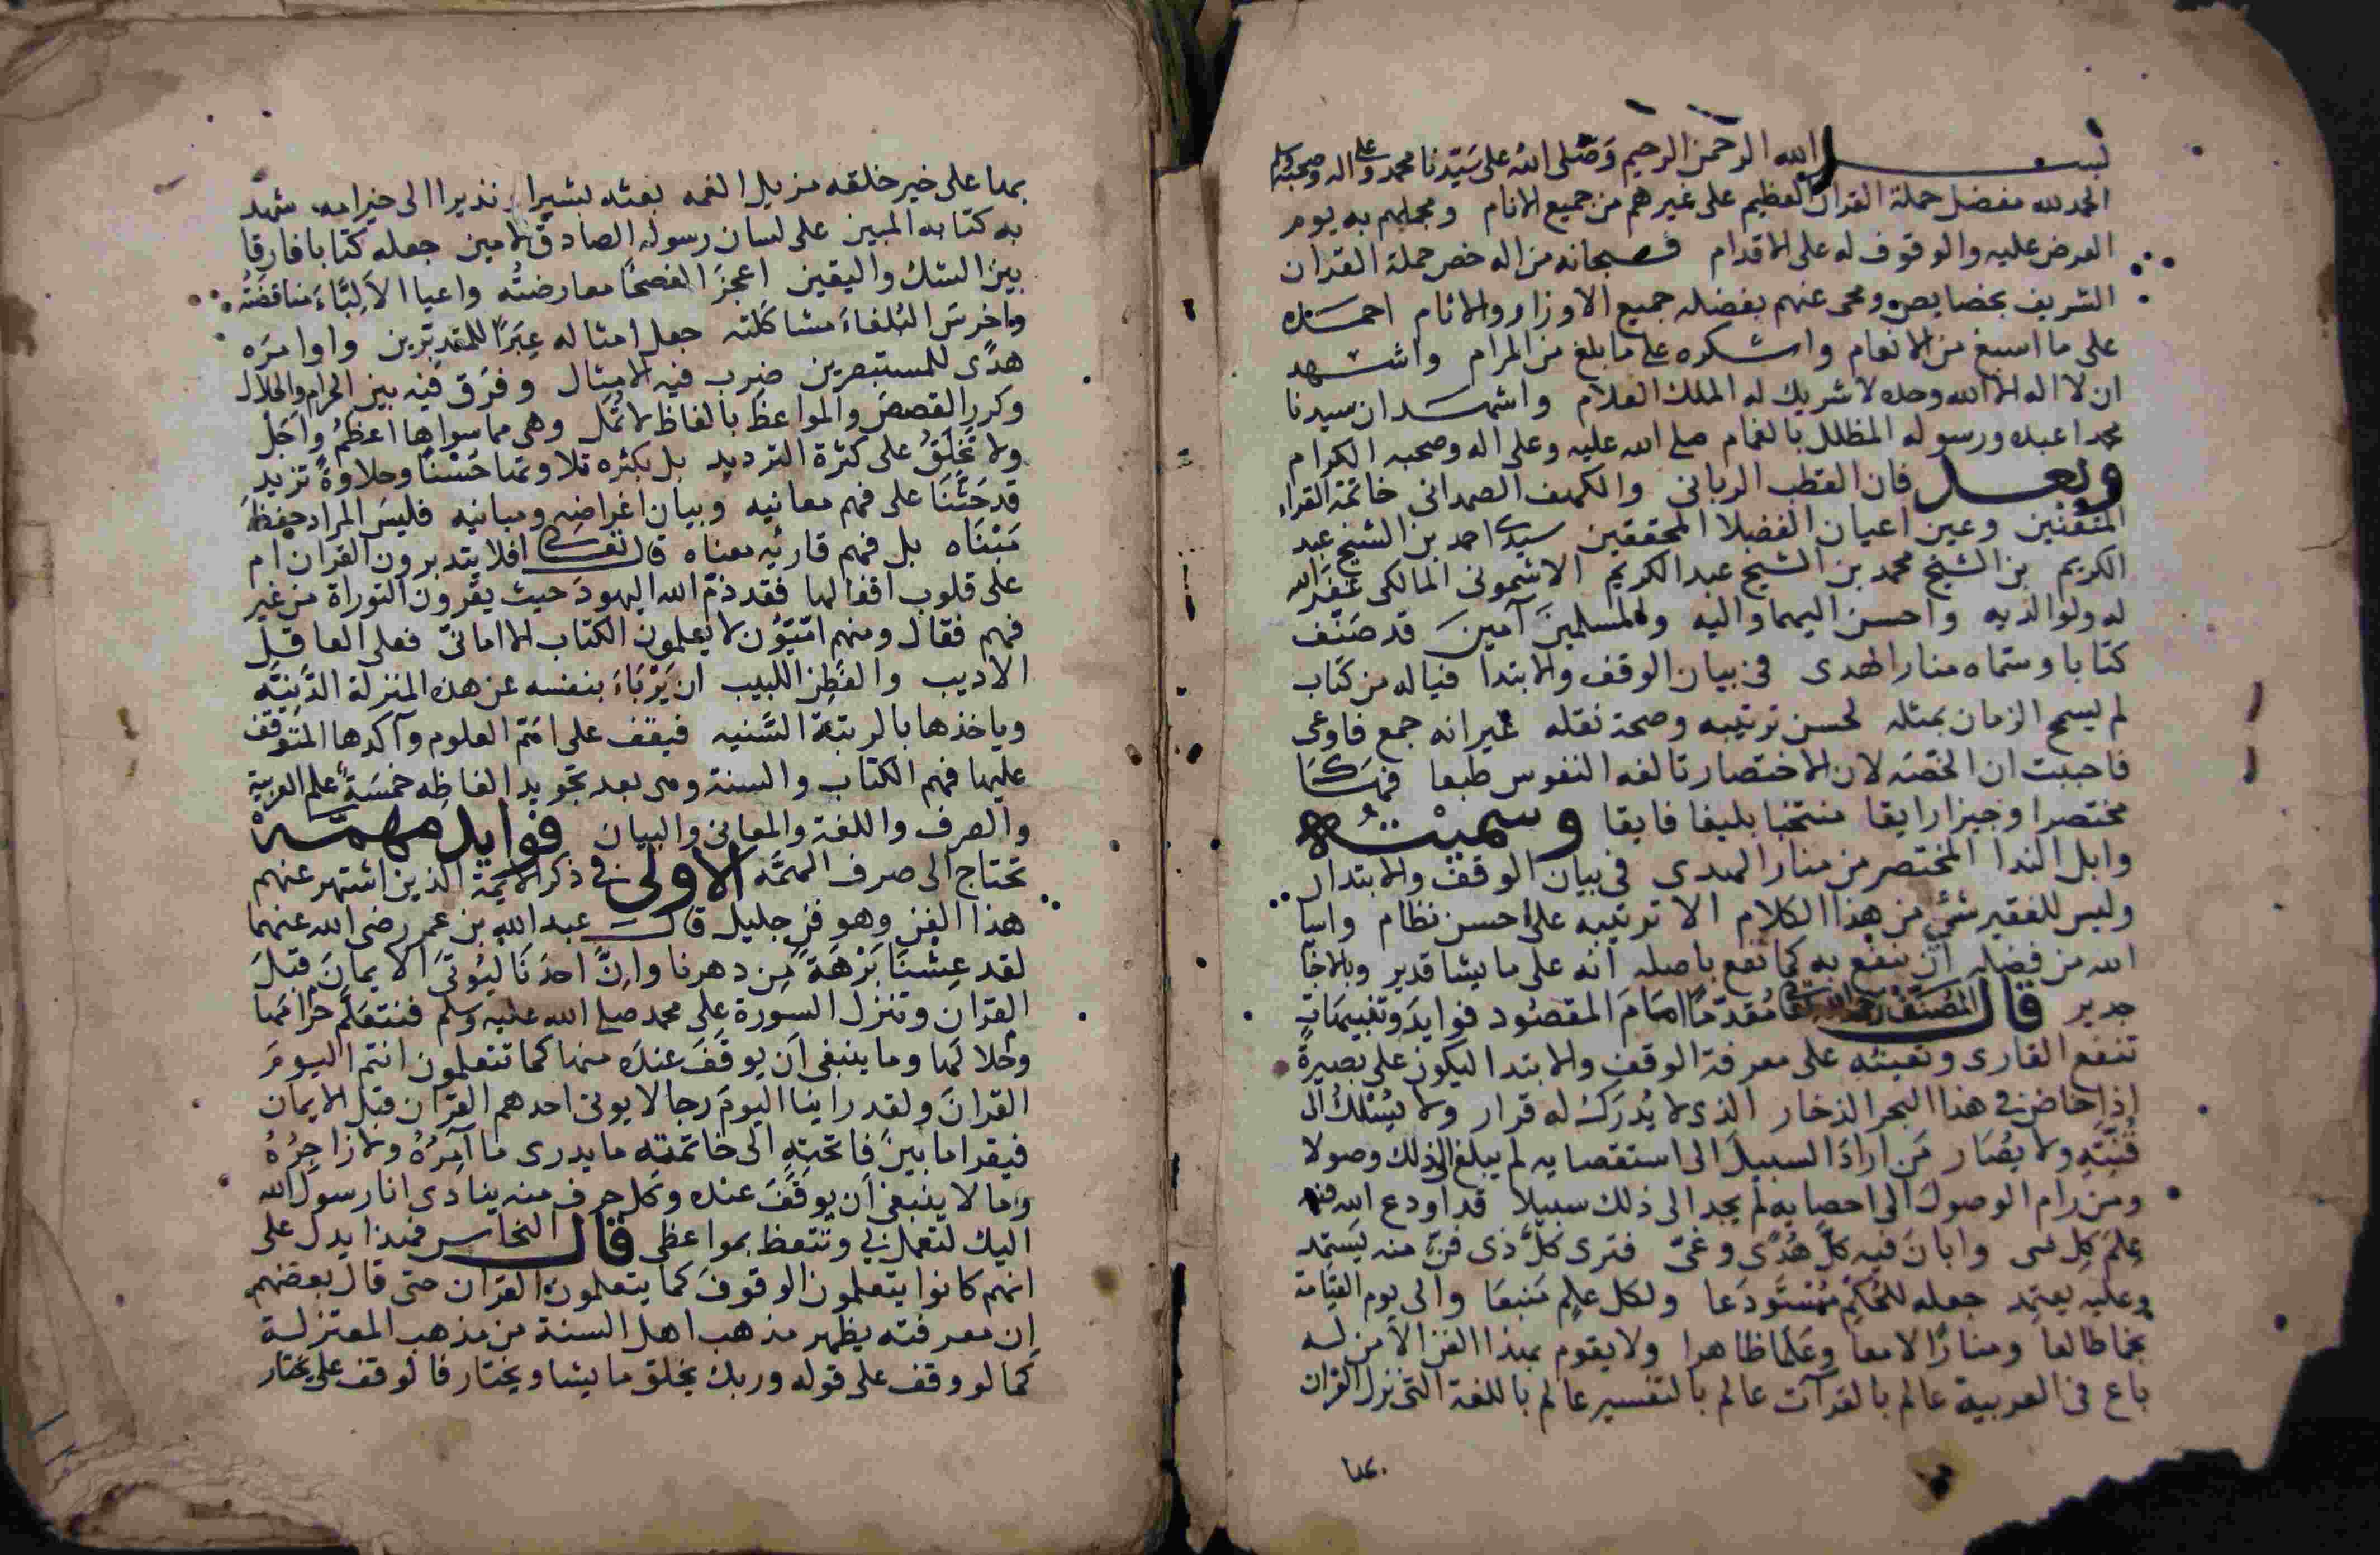 بسم الله الرحمن الرحيم وصلى الله على سيدنا محمد وعلى اله وصحبه وسلم
الحمد لله مفضل حملة القران العظيم على غيرهم من جميع الانام ومجملهم به يوم
العرض عليه والوقوف له على الاقدام فسبحانه من اله خص حملة القران
الشريف بخصايص ومحى عنهم بفضله جميع الاوزار والاثام احمده
على ما اسبغ من الانعام واشكره على ما بلغ من المرام واشهد
ان لا اله الا الله وحده لا شريك له الملك العلام واشهد ان سيدنا
محمدا عبده ورسوله المظلل بالغمام صلى الله عليه وعلى اله وصحبه الكرام
وبعد فان القطب الربانى والكهف الصمدانى خاتمة القراء
المتقنين وعين اعيان الفضلا المحققين سيدى احمد بن الشيخ عبد
الكريم بن الشيخ محمد بن الشيخ عبد الكريم الاشمونى المالكى غفر الله
له ولوالديه واحسن اليهما واليه والمسلمين آمين قد صنف
كتابا وسماه منار الهدى فى بيان الوقف والابتدا فياله من كتاب
لم يسمح الزمان بمثله لحسن ترتيبه وصحة نقله غير انه جمع فاوعى
فاحببت ان الخصه لان الاختصار تالفه النفوس طبعا فهاك
مختصرا وجيزا رايقا منتخبا بليغا فايقا وسميته
وابل الندا المختصر من منار الهدى فى بيان الوقف والابتدا
وليس للفقير شئ من هذا الكلام الا ترتيبه على احسن نظام واسا
الله من فضله ان ينفع به كما نفع باصله انه على ما يشا قدير وبالاجا
جدير قال المصنف رحمه الله تعالى مقدما امام المقصود فوايد وتنبيهات
تنفع القارى وتعينه على معرفة الوقف والابتدا ليكون على بصيرة
اذا خاض فى هذا البحر الذخار الذى لا يدرك له قرار ولا يسلك الى
قنته ولا يصار من اراد السبيل الى استقصايه لم يبلغ الى ذلك وصولا
ومن رام الوصول الى احصايه لم يجد الى ذلك سبيلا قد اودع الله فيه
علم كل شى وابان فيه كل هدى وغى فترى كل ذى فن منه يستمد
وعليه يعتمد جعله للحكم مستودعا ولكل علم منبعا والى يوم القيامة
نجما طالعا ومنارا لامعا وعلما ظاهرا ولا يقوم بهذا الفن الا من له
باع فى العربية عالم بالقرآت عالم بالتفسير عالم باللغة التى نزل القران
بها
بها على خير خلقه مزيل الغمه بعثه بشيرا ونذيرا الى خير امه شهد
به كتابه المبين على لسان رسوله الصادق الامين جعله كتابا فارقا
بين الشك واليقين اعجز الفصحا معارضته واعيا الالباء مناقضته
واخرس البلغاء مشاكلته جعل امثاله عبرا للمتدبرين واوامره
هدى للمستبصرين ضرب فيه الامثال وفرق فيه بين الحرام والحلال
وكرر القصص والمواعظ بالفاظ لا تمل وهى مما سواها اعظم واجل
ولا تخلق على كثرة الترديد بل بكثره تلاوتها حسنا وحلاوة تزيد
قد حثنا على فهم معانيه وبيان اغراضه ومبانيه فليس المراد حفظ
مبناه بل فهم قارئه معناه قال تعالى افلا يتدبرون القران ام
على قلوب اقفالها فقد ذم الله اليهود حيث يقرون التوراة من غير
فهم فقال ومنهم اميون لا يعلمون الكتاب الا امانى فعلى العاقل
الاديب والفطن اللبيب ان يرباء بنفسه عن هذه المنزلة الدنية
وياخذها بالرتبة السنيه فيقف على اهم العلوم وآكدها المتوقف
عليها فهم الكتاب والسنة وهى بعد تجويد الفاظه خمسة علم العربية
والصرف واللغة والمعانى والبيان فوايد مهمة
تحتاج الى صرف الهمه الاولى فى ذكر الائمة الذين اشتهر عنهم
هذا الفن وهو فن جليل قال عبد الله بن عمر رضى الله عنهما
لقد عشنا برهة من دهرنا وان احدنا ليوتى الايمان قبل
القران وتنزل السورة على محمد صلى الله عليه وسلم فنتعلم حرامها
وحلالها وما ينبغى ان يوقف عنده منها كما تتعلمون انتم اليوم
القران ولقد راينا اليوم رجالا يوتى احدهم القران قبل الايمان
فيقرا ما بين فاتحته الى خاتمته ما يدرى ما آمره ولا زاجره
وما لا ينبغى ان يوقف عنده وكل حرف منه ينادى انا رسول الله
اليك لتعمل بى وتتعظ بمواعظى قال النحاس فهذا يدل على
انهم كانوا يتعلمون الوقوف كما يتعلمون القران حتى قال بعضهم
ان معرفته يظهر مذهب اهل السنة من مذهب المعتزلة
كما لو وقف على قوله وربك يخلق ما يشا ويختار فالوقف على يختار